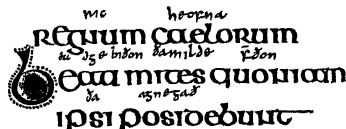 ric heofna
regnum caelorum
eadge biðon ða milde f̄ðon
Beati mites quoniam
ða agnegað
ipsi posidebunt